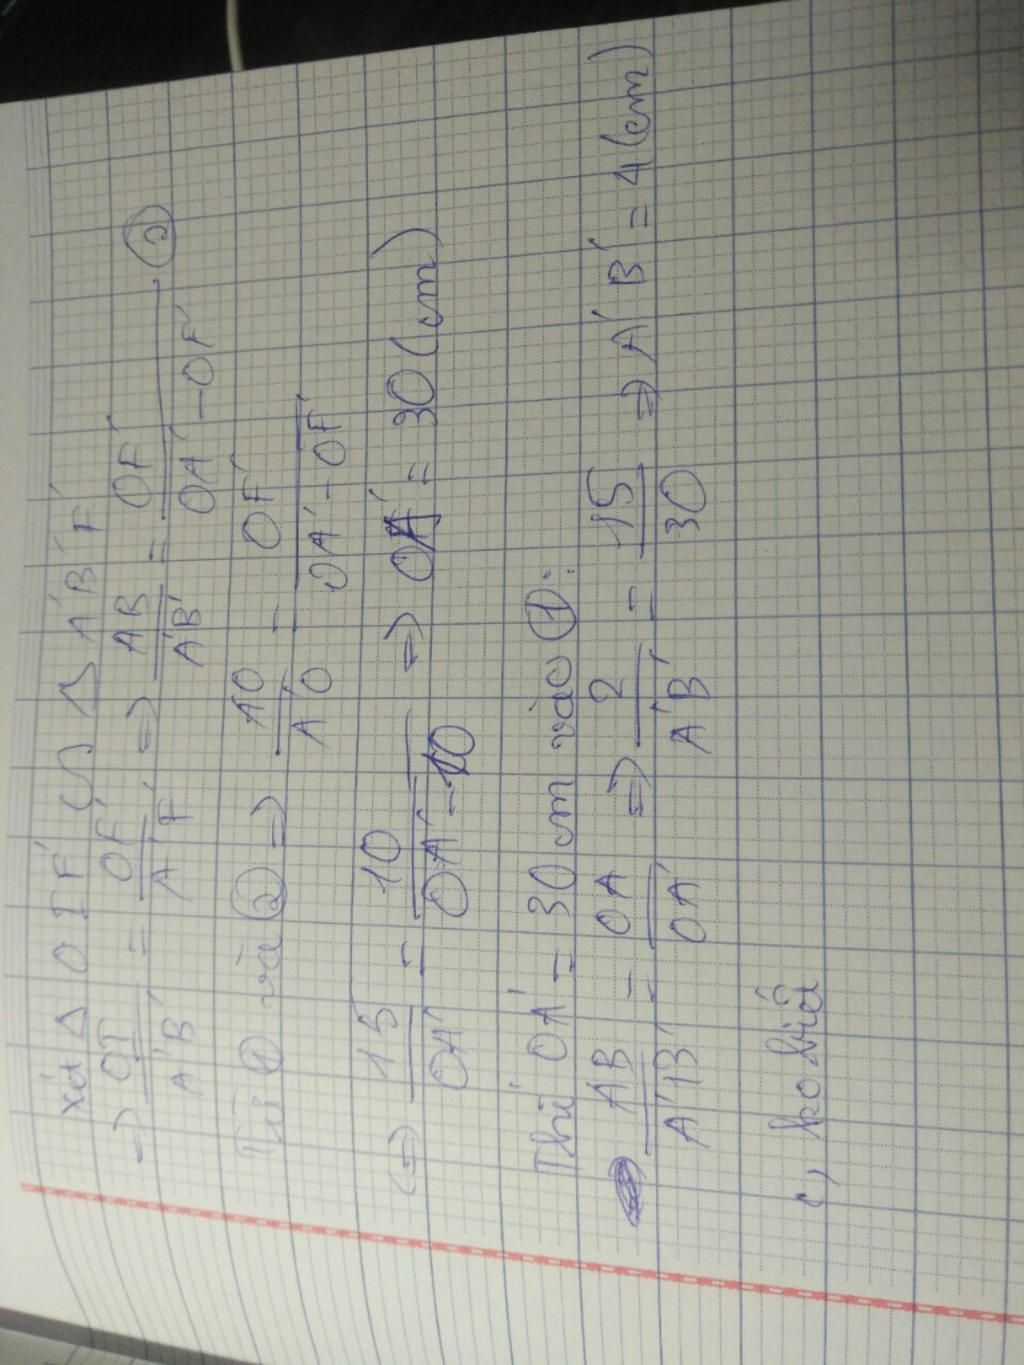 Xét Δ OIF' ∽ Δ A'B'F'
=> OI/A'B' = OF'/A'F' => AB/A'B' = OF'/OA'-OF' (2)
Từ (1) và (2) => AO/A'O = OF'/OA'-OF'
<=> 15/OA' = 10/OA'-10 => OA' = 30 (cm)
Thế OA' = 30 cm vào (1):
AB/A'B' = OA/OA' => 2/A'B' = 15/30 => A'B' = 4 (cm)
c, ko biết